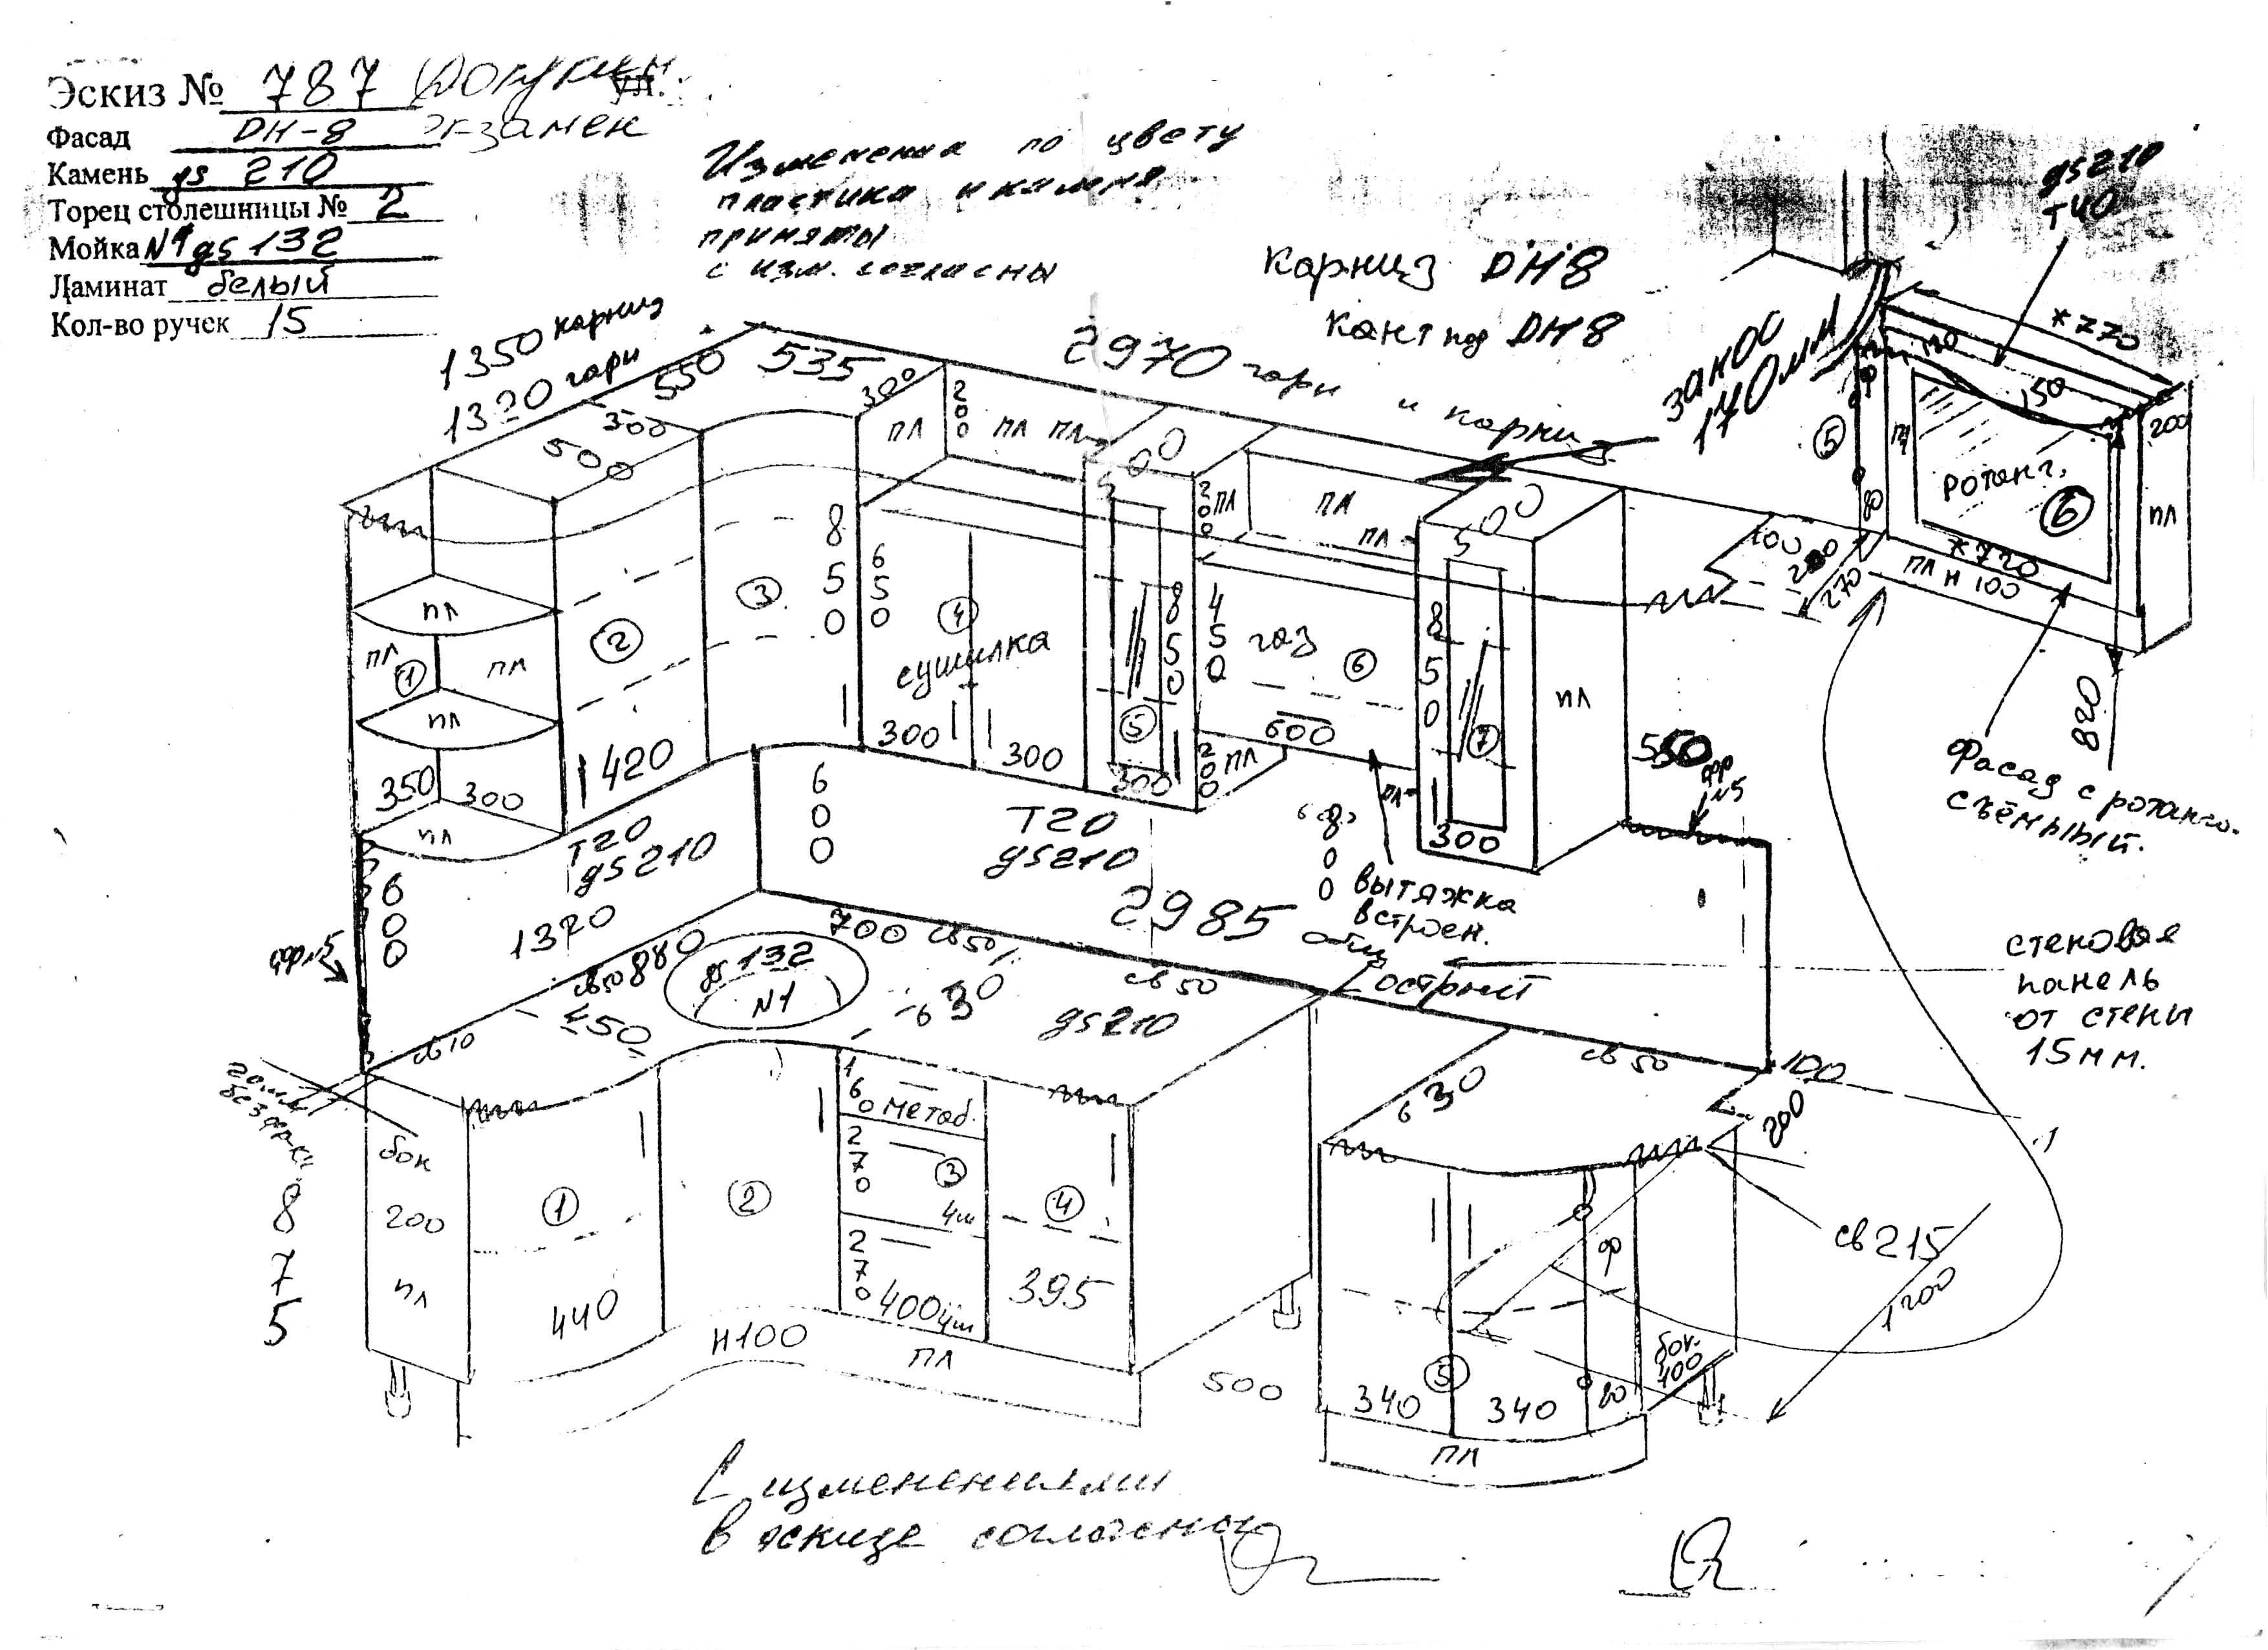 Эскиз № 787
ул.
Фасад DH-8 Экзамен
Камень gs 210
Торец столешницы № 2
Мойка N1 gs 132
Ламинат белый
Кол-во ручек 15
Изменения по цвету
пластика и камня
приняты
с изм. согласны
Карниз DH8
Кант под DH8
gs210
T40
1350 карниз
1320 гори
550 535
2970 гори и карни
занос
170мм
*770
300
500
300
200
ПЛ
ПЛ
ПЛ
ПЛ
500
200
ПЛ
ПЛ
ПЛ
500
100
270
5
80
ПЛ
150
Ротанг.
6
*720
ПЛ H 100
200
ПЛ
820
ПЛ
ПЛ
1
ПЛ
ПЛ
350 300
ПЛ
2
420
3
850
650
4
сушилка
300
300
850
5
300
450
газ
6
600
200
ПЛ
850
7
300
ПЛ
ПЛ
550
N5
Фасад с ротанго.
съёмный.
T20
gs210
600
T20
gs210
800
вытяжка
встроен.
600
1320
2985
общ
стеновая
панель
от стены
15мм.
св50 880
700 св50
gs 132
N1
450
630
св 50
gs210
св10
630
св 50
100
200
св215
1200
875
бок
200
ПЛ
1
440
2
160
метаб.
270
3
4ш
270
400 4ш
4
395
H100
ПЛ
500
340
5
340
ф
80
бок.
400
ПЛ
С изменениями
в эскизе согласны